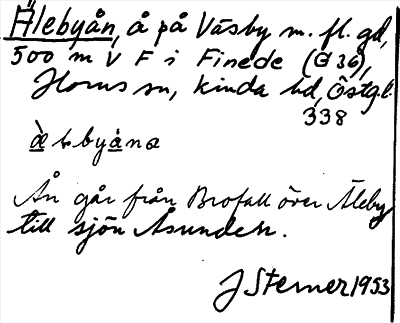 Älebyån, å på Väsby m. fl. gd,
500 m V F i Finede (G 36),
Horns sn, Kinda hd, Östgl.
338
Ån går från Brofall över Äleby
till sjön Åsunden.
J Sterner 1953